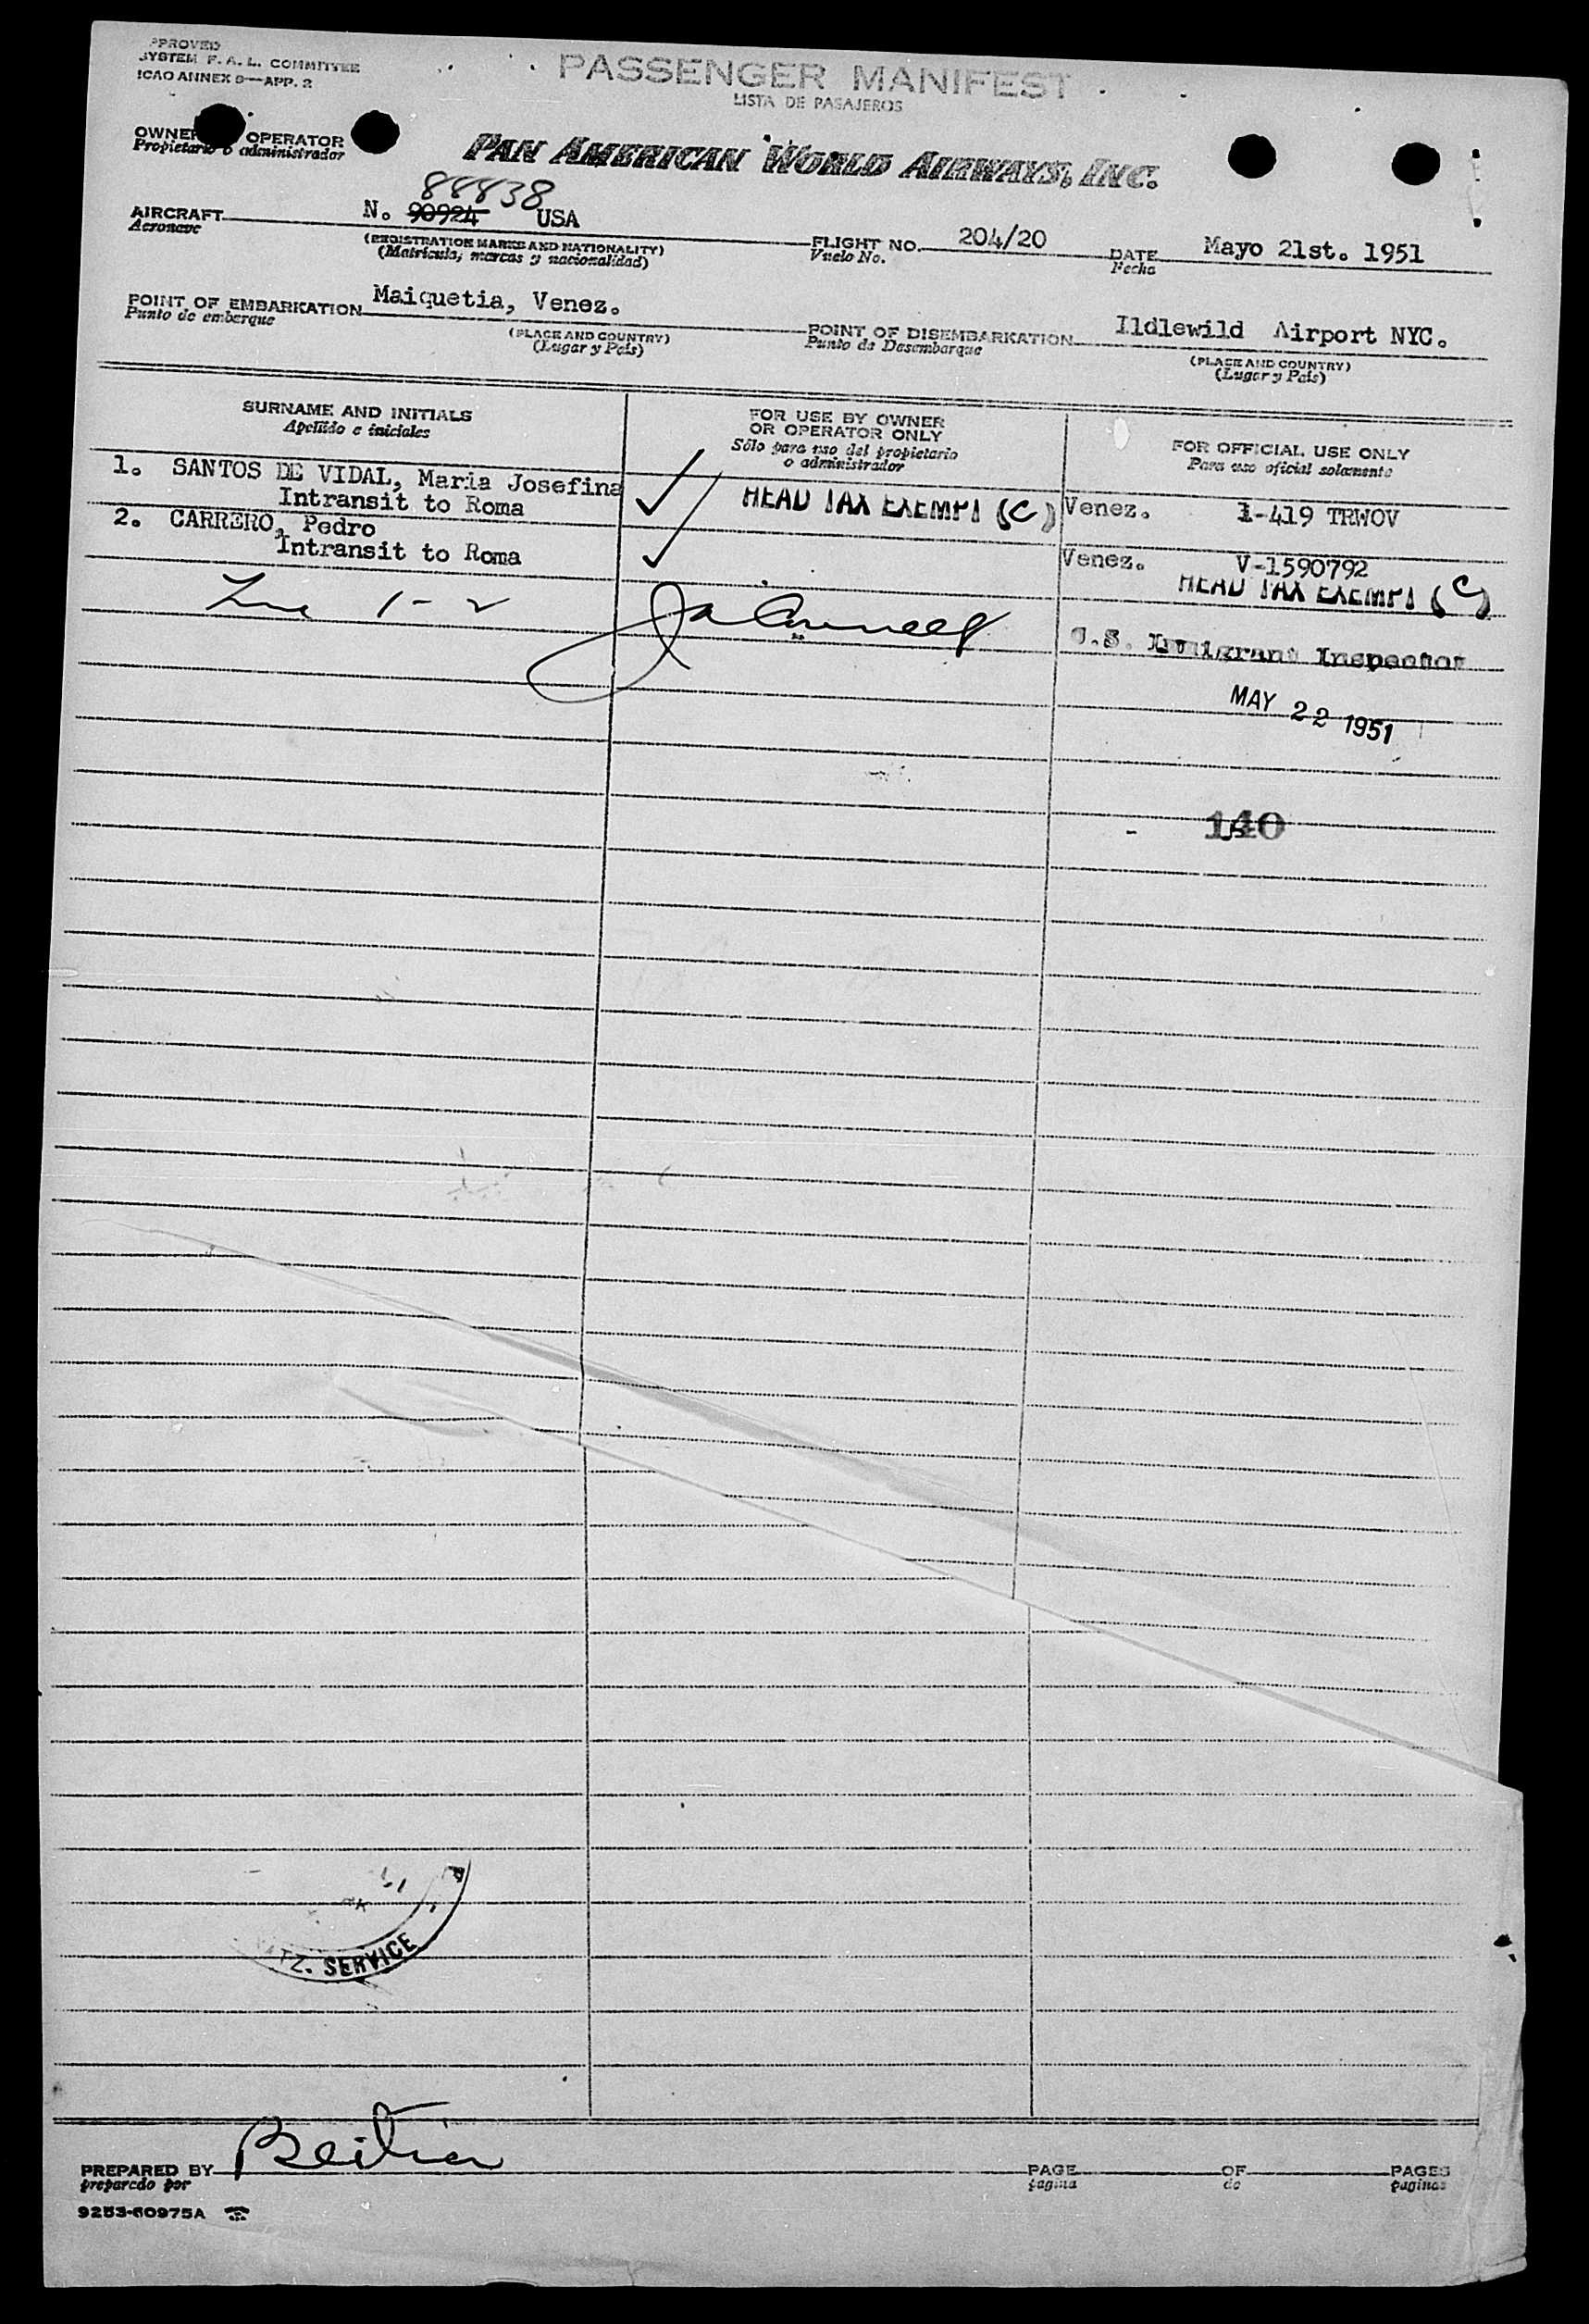 PPROVED
SYSTEM F. A. L. COMMITTEE
ICAO ANNEX 9—APP. 2
PASSENGER MANIFEST
LISTA DE PASAJEROS
OWNER OPERATOR
Propietario o administrador
PAN AMERICAN WORLD AIRWAYS, INC.
88838
AIRCRAFT N. 90924 USA
Aeronave
(REGISTRATION MARKS AND NATIONALITY)
(Matrícula, marcas y nacionalidad)
FLIGHT NO. 204/20
Vuelo No.
DATE Mayo 21st. 1951
Fecha
POINT OF EMBARKATION Maiquetia, Venez.
Punto de embarque
(PLACE AND COUNTRY)
(Lugar y País)
POINT OF DISEMBARKATION Ildlewild Airport NYC.
Punto de Desembarque
(PLACE AND COUNTRY)
(Lugar y País)
SURNAME AND INITIALS
Apellido e iniciales
FOR USE BY OWNER
OR OPERATOR ONLY
Sólo para uso del propietario
o administrador
FOR OFFICIAL USE ONLY
Para uso oficial solamente
1. SANTOS DE VIDAL, Maria Josefina
Intransit to Roma
HEAD TAX EXEMPT (C) Venez. 1-419 TRWOV
2. CARRERO, Pedro
Intransit to Roma
Venez. V-1590792
HEAD TAX EXEMPT (C)
1-2
U.S. Immigrant Inspector
MAY 22 1951
140
ATZ. SERVICE
PREPARED BY
preparado por
PAGE OF PAGES
pagina de paginas
9253-60975A